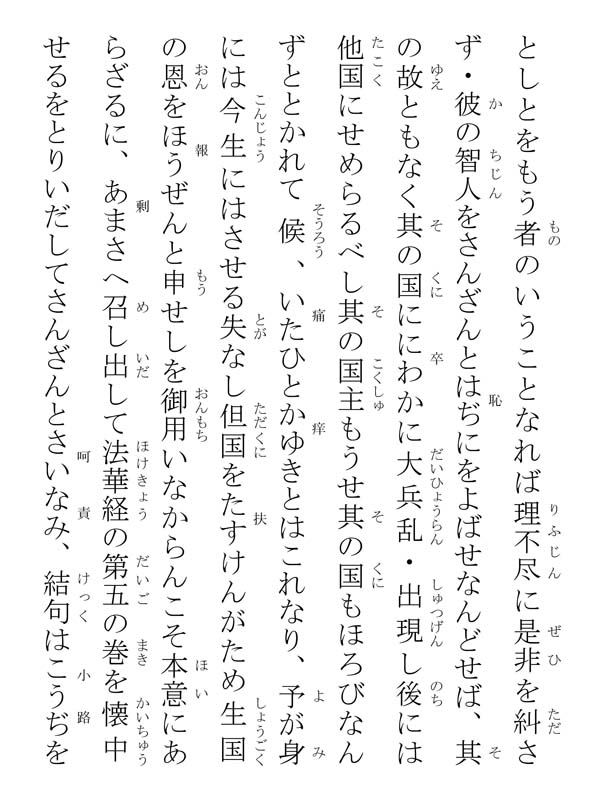 としとをもう者のいうことなれば理不尽に是非を糾さ
ず・彼の智人をさんざんとはぢにをよばせなんどせば、其
の故ともなく其の国ににわかに大兵乱・出現し後には
他国にせめらるべし其の国主もうせ其の国もほろびなん
ずととかれて候、いたひとかゆきとはこれなり、予が身
には今生にはさせる失なし但国をたすけんがため生国
の恩をほうぜんと申せしを御用いなからんこそ本意にあ
らざるに、あまさへ召し出して法華経の第五の巻を懐中
せるをとりいだしてさんざんとさいなみ、結句はこうぢを